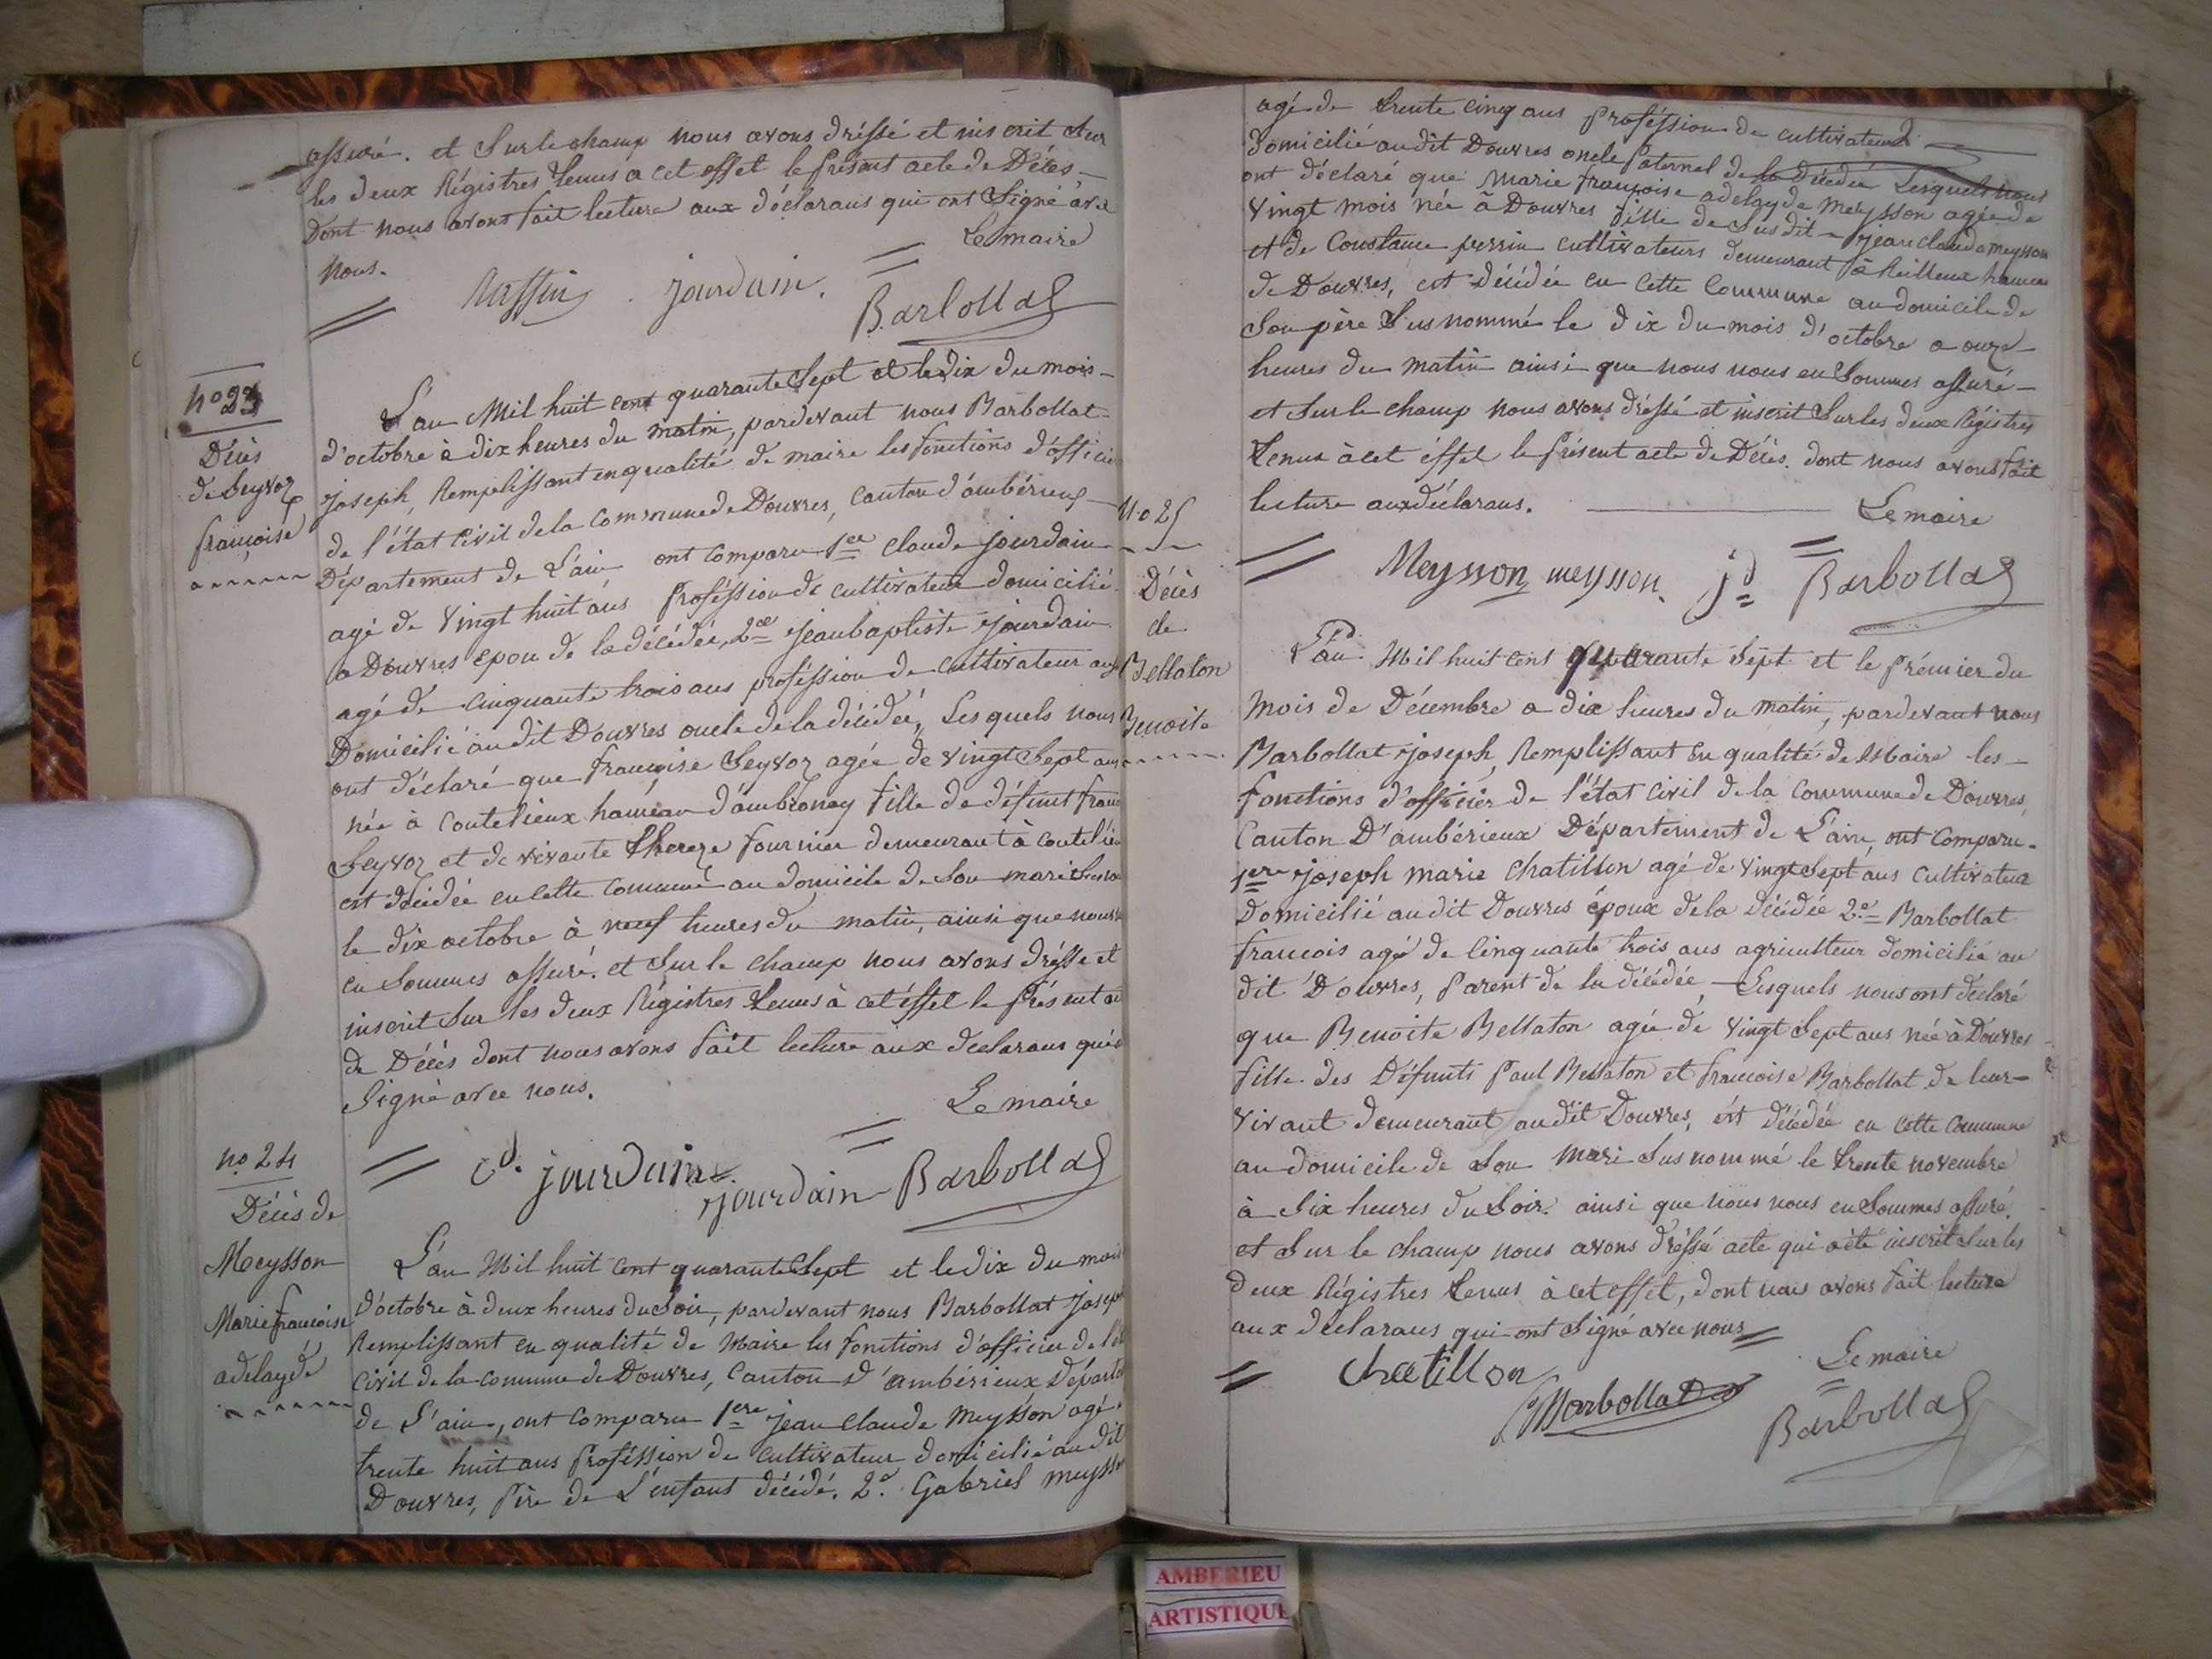 assuré. et Sur le champ nous avons dréssé et inscrit Sur
les deux Régistres tenus a cet effet le présent acte de Décés
Dont nous avons fait lecture aux déclarans qui ont Signé avec
nous.
Le maire
jourdain.
Barbollat
no 23
Décès
de Seyvoz
françoise
L'an Mil huit cent quarante Sept et le dix du mois
d'octobre à dix heures du matin, pardevant nous Barbollat
joseph, Remplissant en qualité de maire les fonctions d'officier
de l'état civil de la Commune de Douvres, canton d'ambérieux
Département de L'ain ont comparu 1er Claude jourdain
agé de Vingt huit ans Proféssion de cultivateur domicilié
a Douvres epou de la décédée, 2e jean baptiste jourdain
agé de Cinquante trois ans proféssion de cultivateur aussi
Domicilié au dit Douvres oncle de la décédée, Lesquels nous
ont déclaré que françoise Seyvoz agée de vingt Sept ans
née à Coutelieux hameau d'ambronay fille de défunt
Seyvoz et de vivante thereze fournier demeurant à
est décédée en cette commune au domicile de Son mari
le dix octobre à neuf heures du matin, ainsi que nous
en Sommes assuré. et Sur le champ nous avons dréssé et
inscrit Sur les deux Régistres tenus à cet éffet le présent
de Décés dont nous avons fait lecture aux declarans qui
Signé avec nous.
Le maire
cd. jourdain
jourdain Barbollat
no 24
Décés de
Meysson
Marie françoise
adelayde
L'an Mil huit cent quarante Sept et le dix du mois
d'octobre à deux heures du Soir, pardevant nous Barbollat joseph
Remplissant en qualité de Maire les fonctions d'officier de
Civil de la commune de Douvres, Canton d'ambérieux
de L'ain, ont comparu 1ere jean claude Meysson agé
trente huit ans Proféssion de cultivateur domicilié au dit
Douvres, Père de L'enfant décédé. 2e Gabriel Meysson
agé de trente cinq ans Proféssion de cultivateur
domicilié au dit Douvres oncle Paternel de la décédée Lesquels nous
ont déclaré que Marie françoise adelayde Meysson agée de
Vingt mois née à Douvres fille de Sus dit jean claude meysson
et de Constance perrin cultivateurs demeurant à hameau
de Douvres, est décédée en cette Commune au domicile de
Son père Sus nommé le dix du mois d'octobre a onze
heures du matin ainsi que nous nous en Sommes assuré
et Sur le champ nous avons dréssé et inscrit Sur les deux Régistres
tenus à cet éffet le présent acte de Décés. dont nous avons fait
lecture aux déclarans.
Le maire
Meysson meysson jd Barbollat
No 25
Décès
de
Bellaton
Benoite
L'an Mil huit cent quarante Sept et le Prémier du
mois de Décembre a dix heures du matin, pardevant nous
Barbollat joseph, Remplissant en qualité de Maire les
fonctions d'officier de l'état Civil de la Commune de Douvres
Canton D'ambérieux Département de L'ain, ont comparu
1ere joseph marie Chatillon agé de Vingt Sept ans Cultivateur
Domicilié au dit Douvres époux de la décédée 2e Barbollat
francois agé de Cinquante trois ans agriculteur domicilié au
dit Douvres, Parent de la décédée Lesquels nous ont declaré
que Benoite Bellaton agée de Vingt Sept ans née à Douvres
fille des Défunts Paul Bellaton et françoise Barbollat de leur
vivant demeurant au dit Douvres, ést décédée en cette Commune
au domicile de Son Mari Sus nommé le trente novembre
à Six heures du Soir. ainsi que nous nous en Sommes assuré.
et Sur le champ nous avons dréssé acte qui a été inscrit Sur les
deux Régistres tenus à cet effet, dont nous avons fait lecture
aux déclarans qui ont Signé avec nous
Le maire
Chatillon
Barbollat
Barbollat
AMBERIEU
ARTISTIQUE